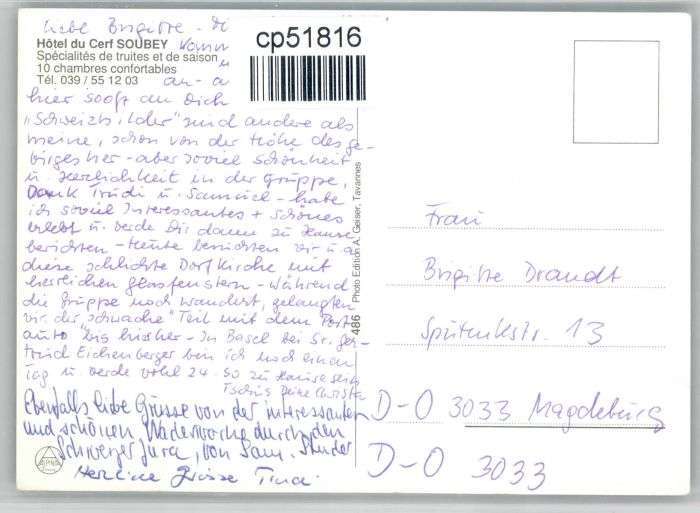 liebe Brigitte - d
Hôtel du Cerf SOUBEY
Spécialités de truites et de saison
10 chambres confortables
Tél. 039 / 55 12 03
cp51816
hier so oft an Dich
sind andere als
meine, schon von der Höhe des ge-
birges her - aber soviel Schönheit
u. Herzlichkeit in der Gruppe,
Dank Trudi u. Samuel - habe
ich soviel Interessantes + Schönes
erlebt u. werde Dir dann zu Hause
berichten - Heute besichten wir u a
diese schlichte Dorfkirche mit
herrlichen Glasfenstern - Während
die Gruppe noch wandert, gelangten
wir der "schwache" Teil mit dem Post-
auto bis hierher - In Basel bei Sr. Ger-
trud Eichenberger bin ich noch einen
Tag u. werde wohl 24. so zu Hause sein
Tschüs Deine Christa
Ebenfalls liebe Grüsse von der interessanten
und schönen Wanderwoche durch den
Schweizer Jura, von Sam. Studer
Herzliche Grüsse Trudi
486 Photo Edition A. Geiser, Tavannes
Frau
Brigitte Brandt
13
D-O 3033 Magdeburg
D-O 3033